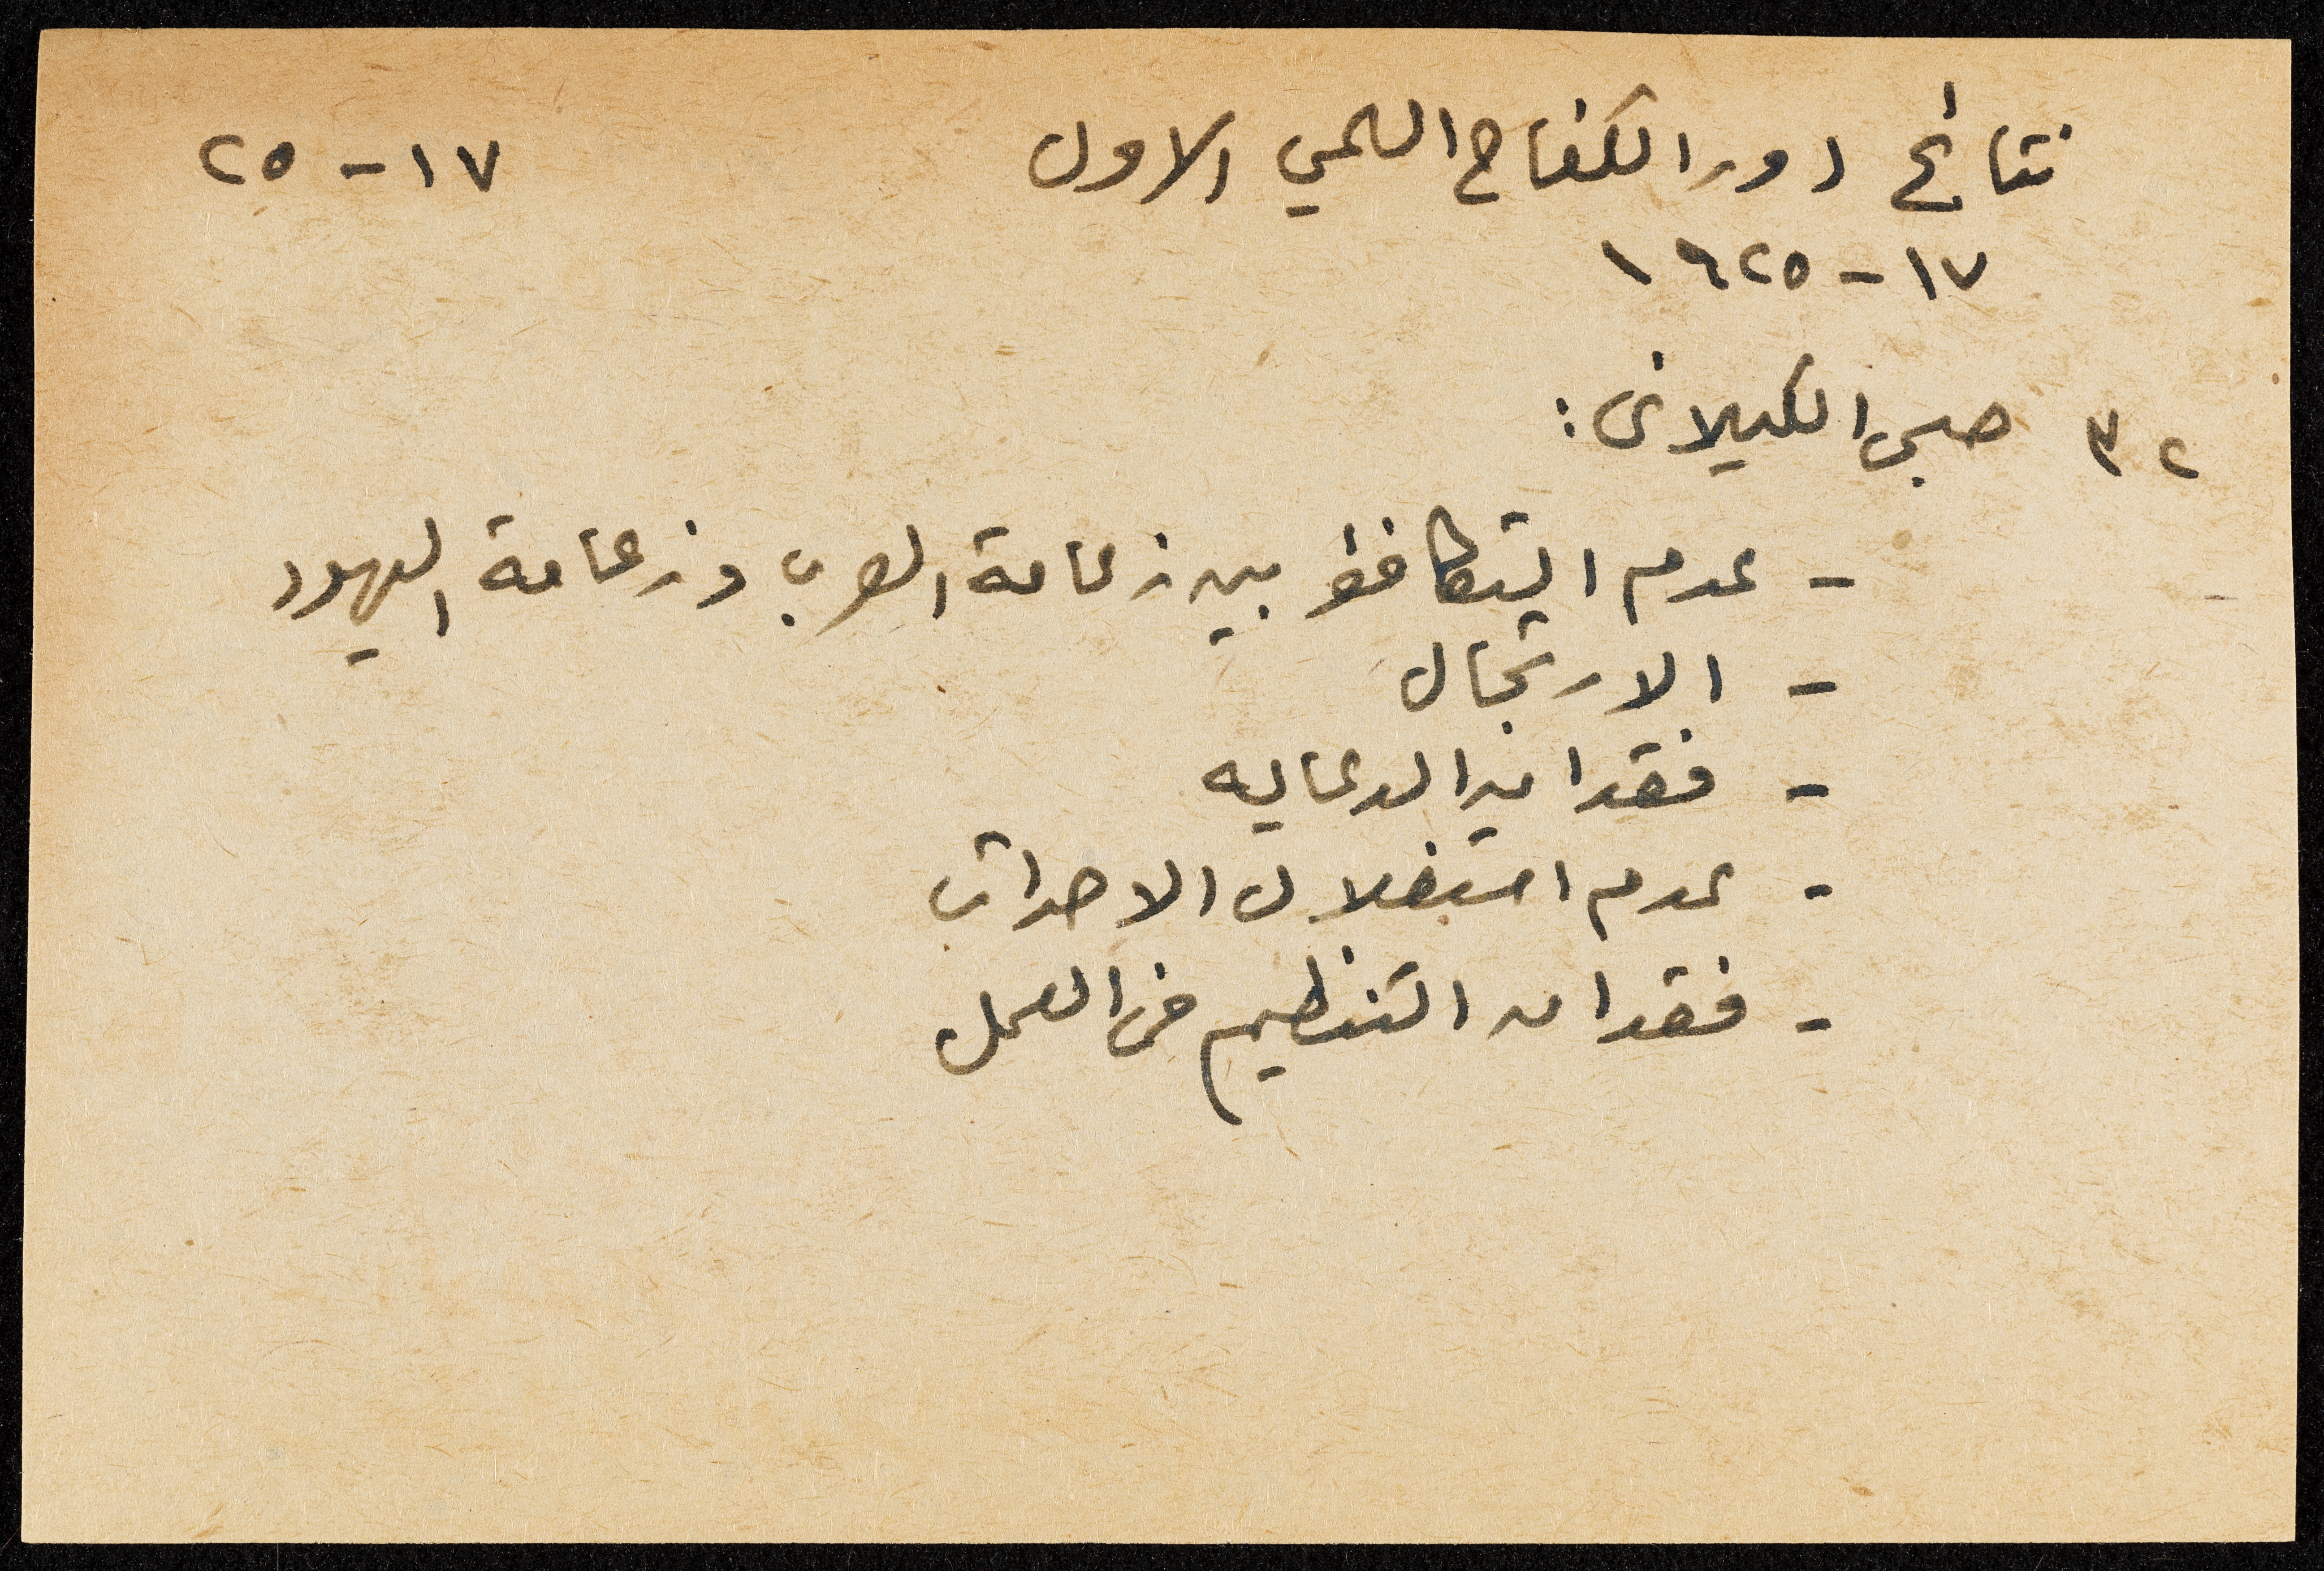 نتائج دور الكفاح السلمي الاول ١٧-٢٥
١٧-١٩٢٥
٣٢ صبحي الكيلاني:
- عدم التكافؤ بين زعامة العرب وزعامة اليهود
- الارتجال
- فقدان الدعايه
- عدم استغلال الاحداث
- فقدان التنظيم في العمل